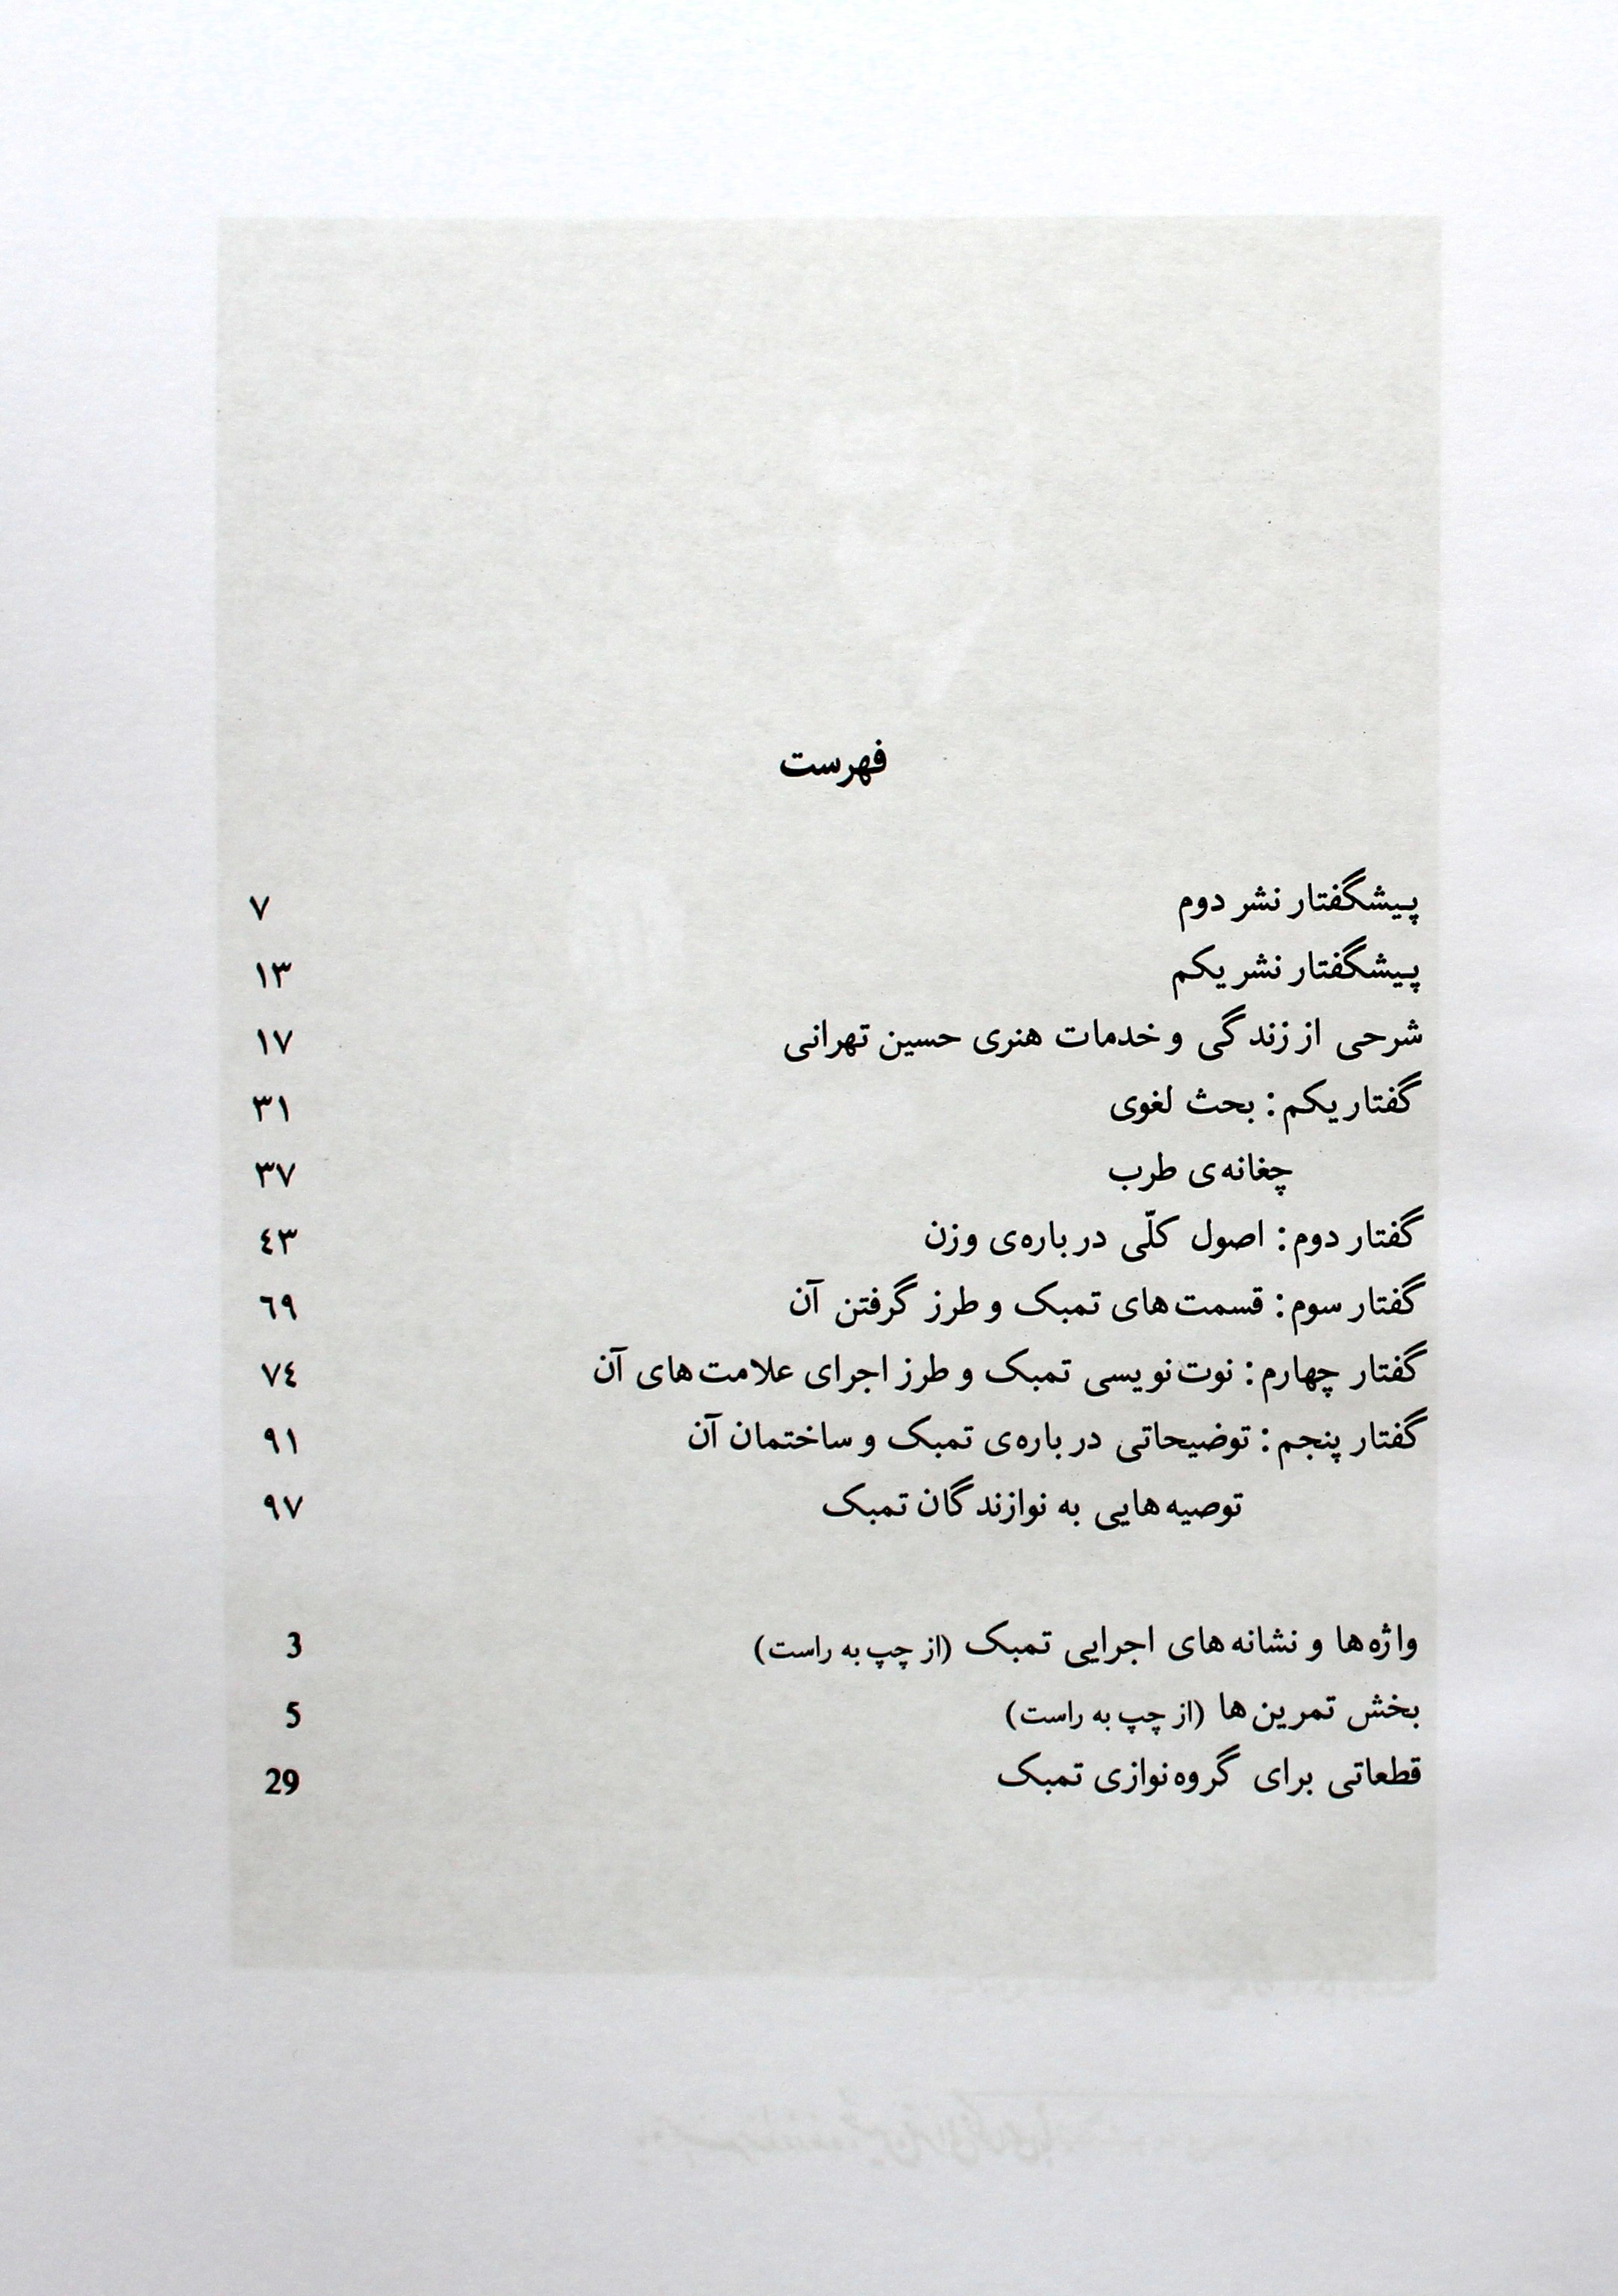 فهرست
پیشگفتار نشر دوم ۷
پیشگفتار نشر یکم ۱۳
شرحی از زندگی و خدمات هنری حسین تهرانی ۱۷
گفتار یکم: بحث لغوی ۳۱
چغانه‌ی طرب ۳۷
گفتار دوم: اصول کلّی درباره‌ی وزن ٤۳
گفتار سوم: قسمت‌های تمبک و طرز گرفتن آن ٦۹
گفتار چهارم: نوت‌نویسی تمبک و طرز اجرای علامت‌های آن ۷٤
گفتار پنجم: توضیحاتی درباره‌ی تمبک و ساختمان آن ۹۱
توصیه‌هایی به نوازندگان تمبک ۹۷
واژه‌ها و نشانه‌های اجرایی تمبک (از چپ به راست) 3
بخش تمرین‌ها (از چپ به راست) 5
قطعاتی برای گروه‌نوازی تمبک 29